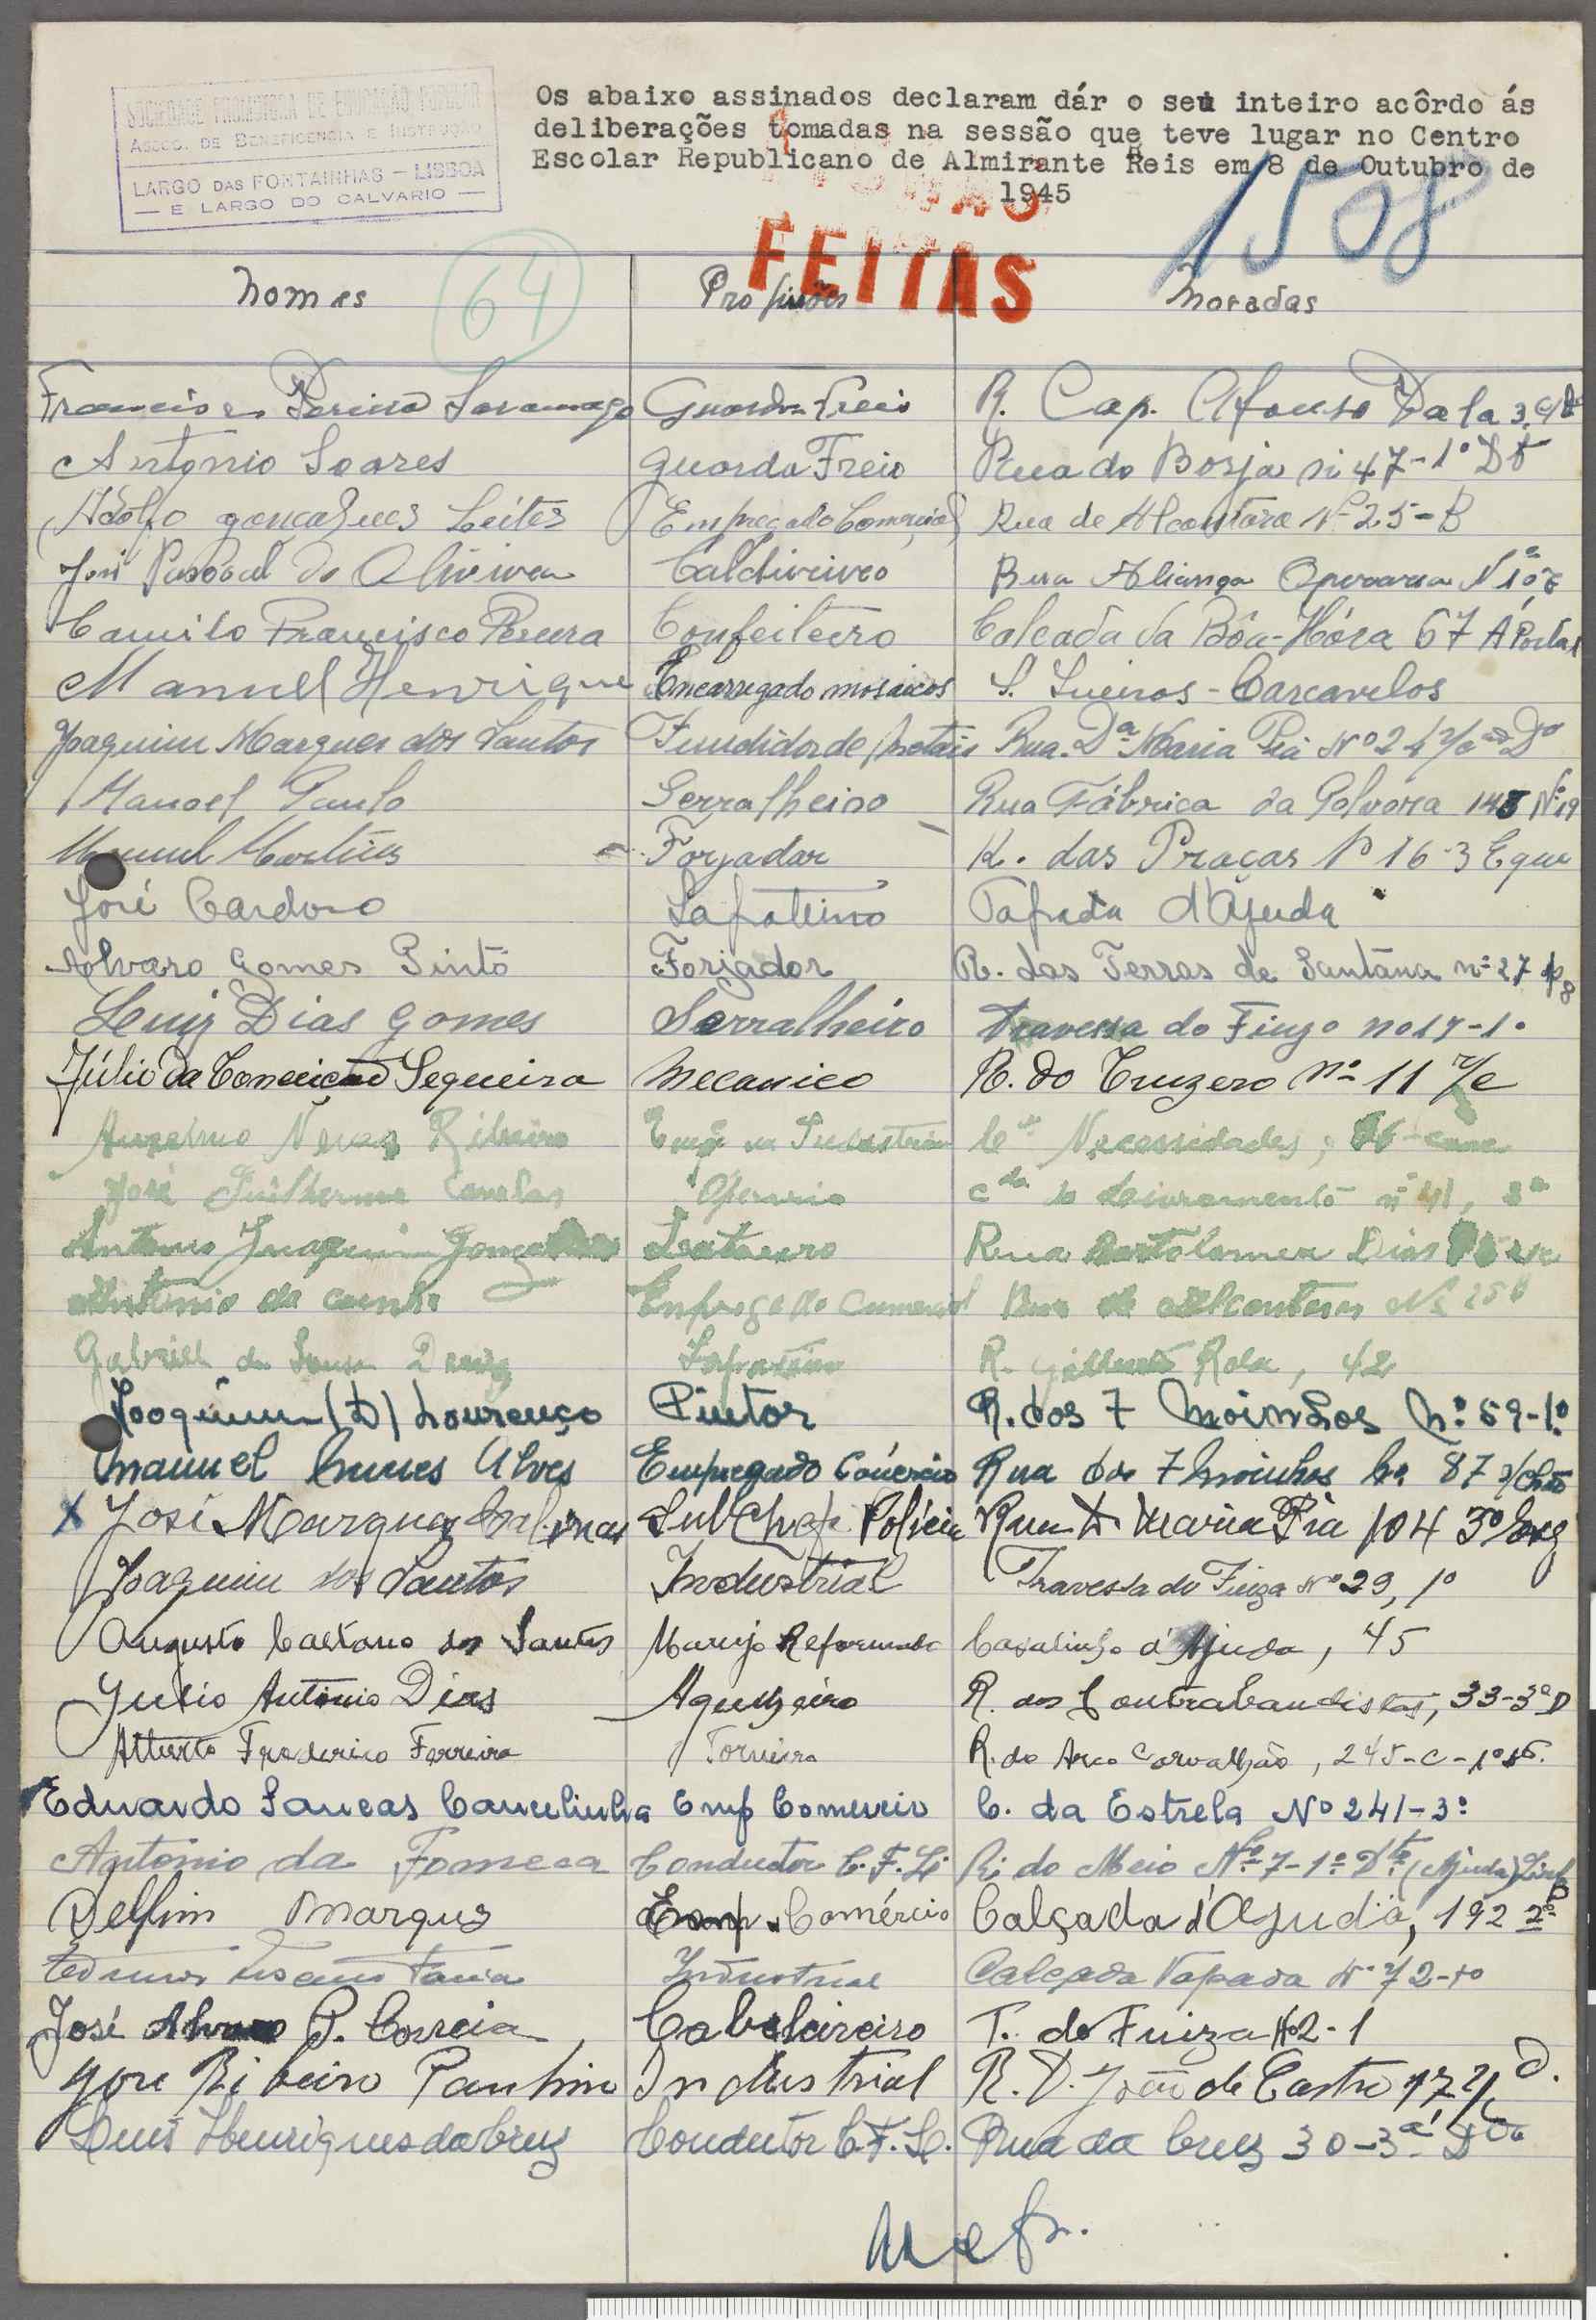 SOCIEDADE PROMOTORA DE EDUCAÇÃO POPULAR
ASSOC. DE BENEFICENCIA E INSTRUÇÃO
LARGO DAS FONTAINHAS - LISBOA
— E LARGO DO CALVARIO —
Os abaixo assinados declaram dár o seu inteiro acôrdo ás
deliberações tomadas na sessão que teve lugar no Centro
Escolar Republicano de Almirante Reis em 8 de Outubro de
1945
1508
FEITAS
64
Nomes Profissões Moradas
Francisco Pereira Saramago Guarda Freio R. Cap. Afonso Pala 3
António Soares guarda Freio Rua do Borja nº 47-1º Dt
Adolfo gonçalves Leites Empregado Comercial Rua de Alcantara Nº 25-B
José Pascoal de Oliveira Caldireireo Rua Aliança Operaria
Camilo Francisco Pereira Confeiteiro Calçada da Bôa-Hóra 67 A Portal
Manuel Henrique Encarregado mosaicos Carcavelos
Joaquim Marques dos Santos Fundidor de Metais Rua Dª Maria Pia Nº 24 r/c
Manoel Paulo Serralheiro Rua Fábrica da Polvora 148 Nº 19
Manuel Martins Forjador R. das Praças Nº 16-3
José Cardoso Sapateiro Tapada d'Ajuda
Alvaro Gomes Pinto Forjador R. das Terras de Santâna nº 27
Luiz Dias Gomes Serralheiro Travessa do Fiuza no 17-1º
Júlio da Conceição Sequeira Mecanico R. do Cruzero nº 11 r/c
Anselmo Neves Ribeiro Necessidades,
José Guilherme Canelas Operario cda do Livramento nº 41, 3º
Antonio Joaquim Rua Bartolomeu Dias
António da cunha Empregado Comercial Rua de Alcantara Nº 25 B
Gabriel de Sousa Diniz Sapateiro R. Gilberto Rola, 42
Joaquim (D) Lourenço Pintor R. dos 7 Moinhos Nº 59-1º
Manuel Nunes Alves Empregado Comércio Rua dos 7 Moinhos Nº 87 r/chão
x José Marques Sub Chefe Polícia Rua D. Maria Pia 104 3º Esq
Joaquim dos Santos Industrial Travessa do Fiuza Nº 29, 1º
Augusto Caetano dos Santos Marujo Reformado Casalinho d'Ajuda, 45
Julio António Dias Agulheiro R. dos Contrabandistas, 33-3º D
Alberto Frederico Ferreira Torneiro R. do Arco Carvalhão, 245-C-1º
Eduardo Cancelinha Emp Comercio C. da Estrela Nº 241-3º
Antonio da Fonseca Condutor C.F.L. R. do Meio Nº 7-1º Dto (Ajuda)
Delfim Marques Emp. Comércio Calçada d'Ajuda, 192 2º
Industrial Calçada Tapada
José Alvaro P. Correia Cabeleireiro T. do Fiuza Nº 2-1
José Ribeiro Paulino Industrial R. D. João de Castro 17 r/c D.
Luis Henriques da Cruz Condutor C.F.L. Rua da Cruz 30-3º Dto